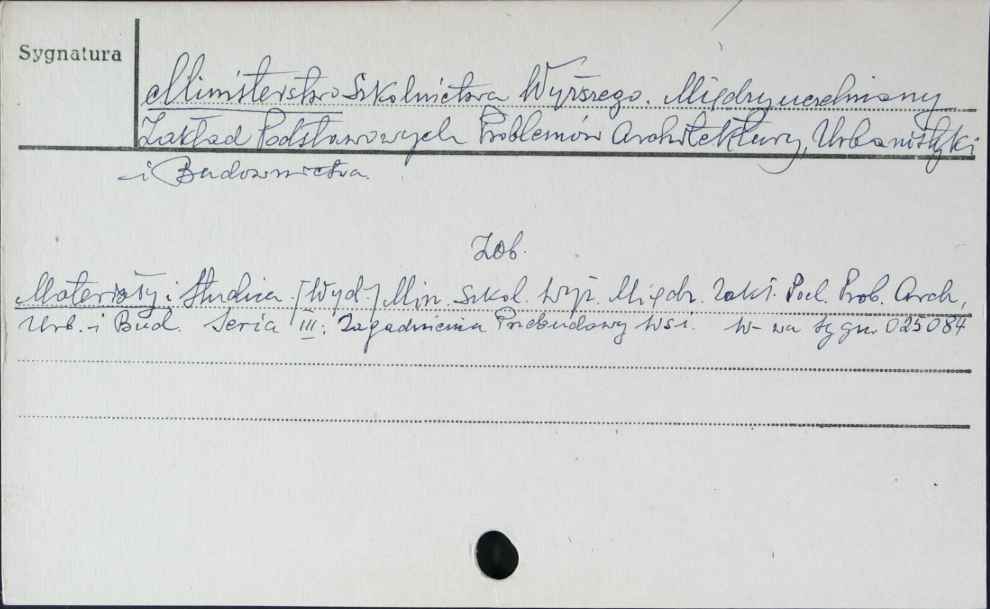 Sygnatura
Ministerstwo Szkolnictwa Wyższego. Międzyuczelniany
Zakład Podstawowych Problemów Architektury, Urbanistyki
i Budownictwa
Zob.
Materiały i Studia. [Wyd.] Min. Szkol. Wyż. Międz. Zakł. Pod. Prob. Arch.,
Urb. i Bud. Seria III: Zagadnienia Przebudowy Wsi. W-wa sygn. 025084